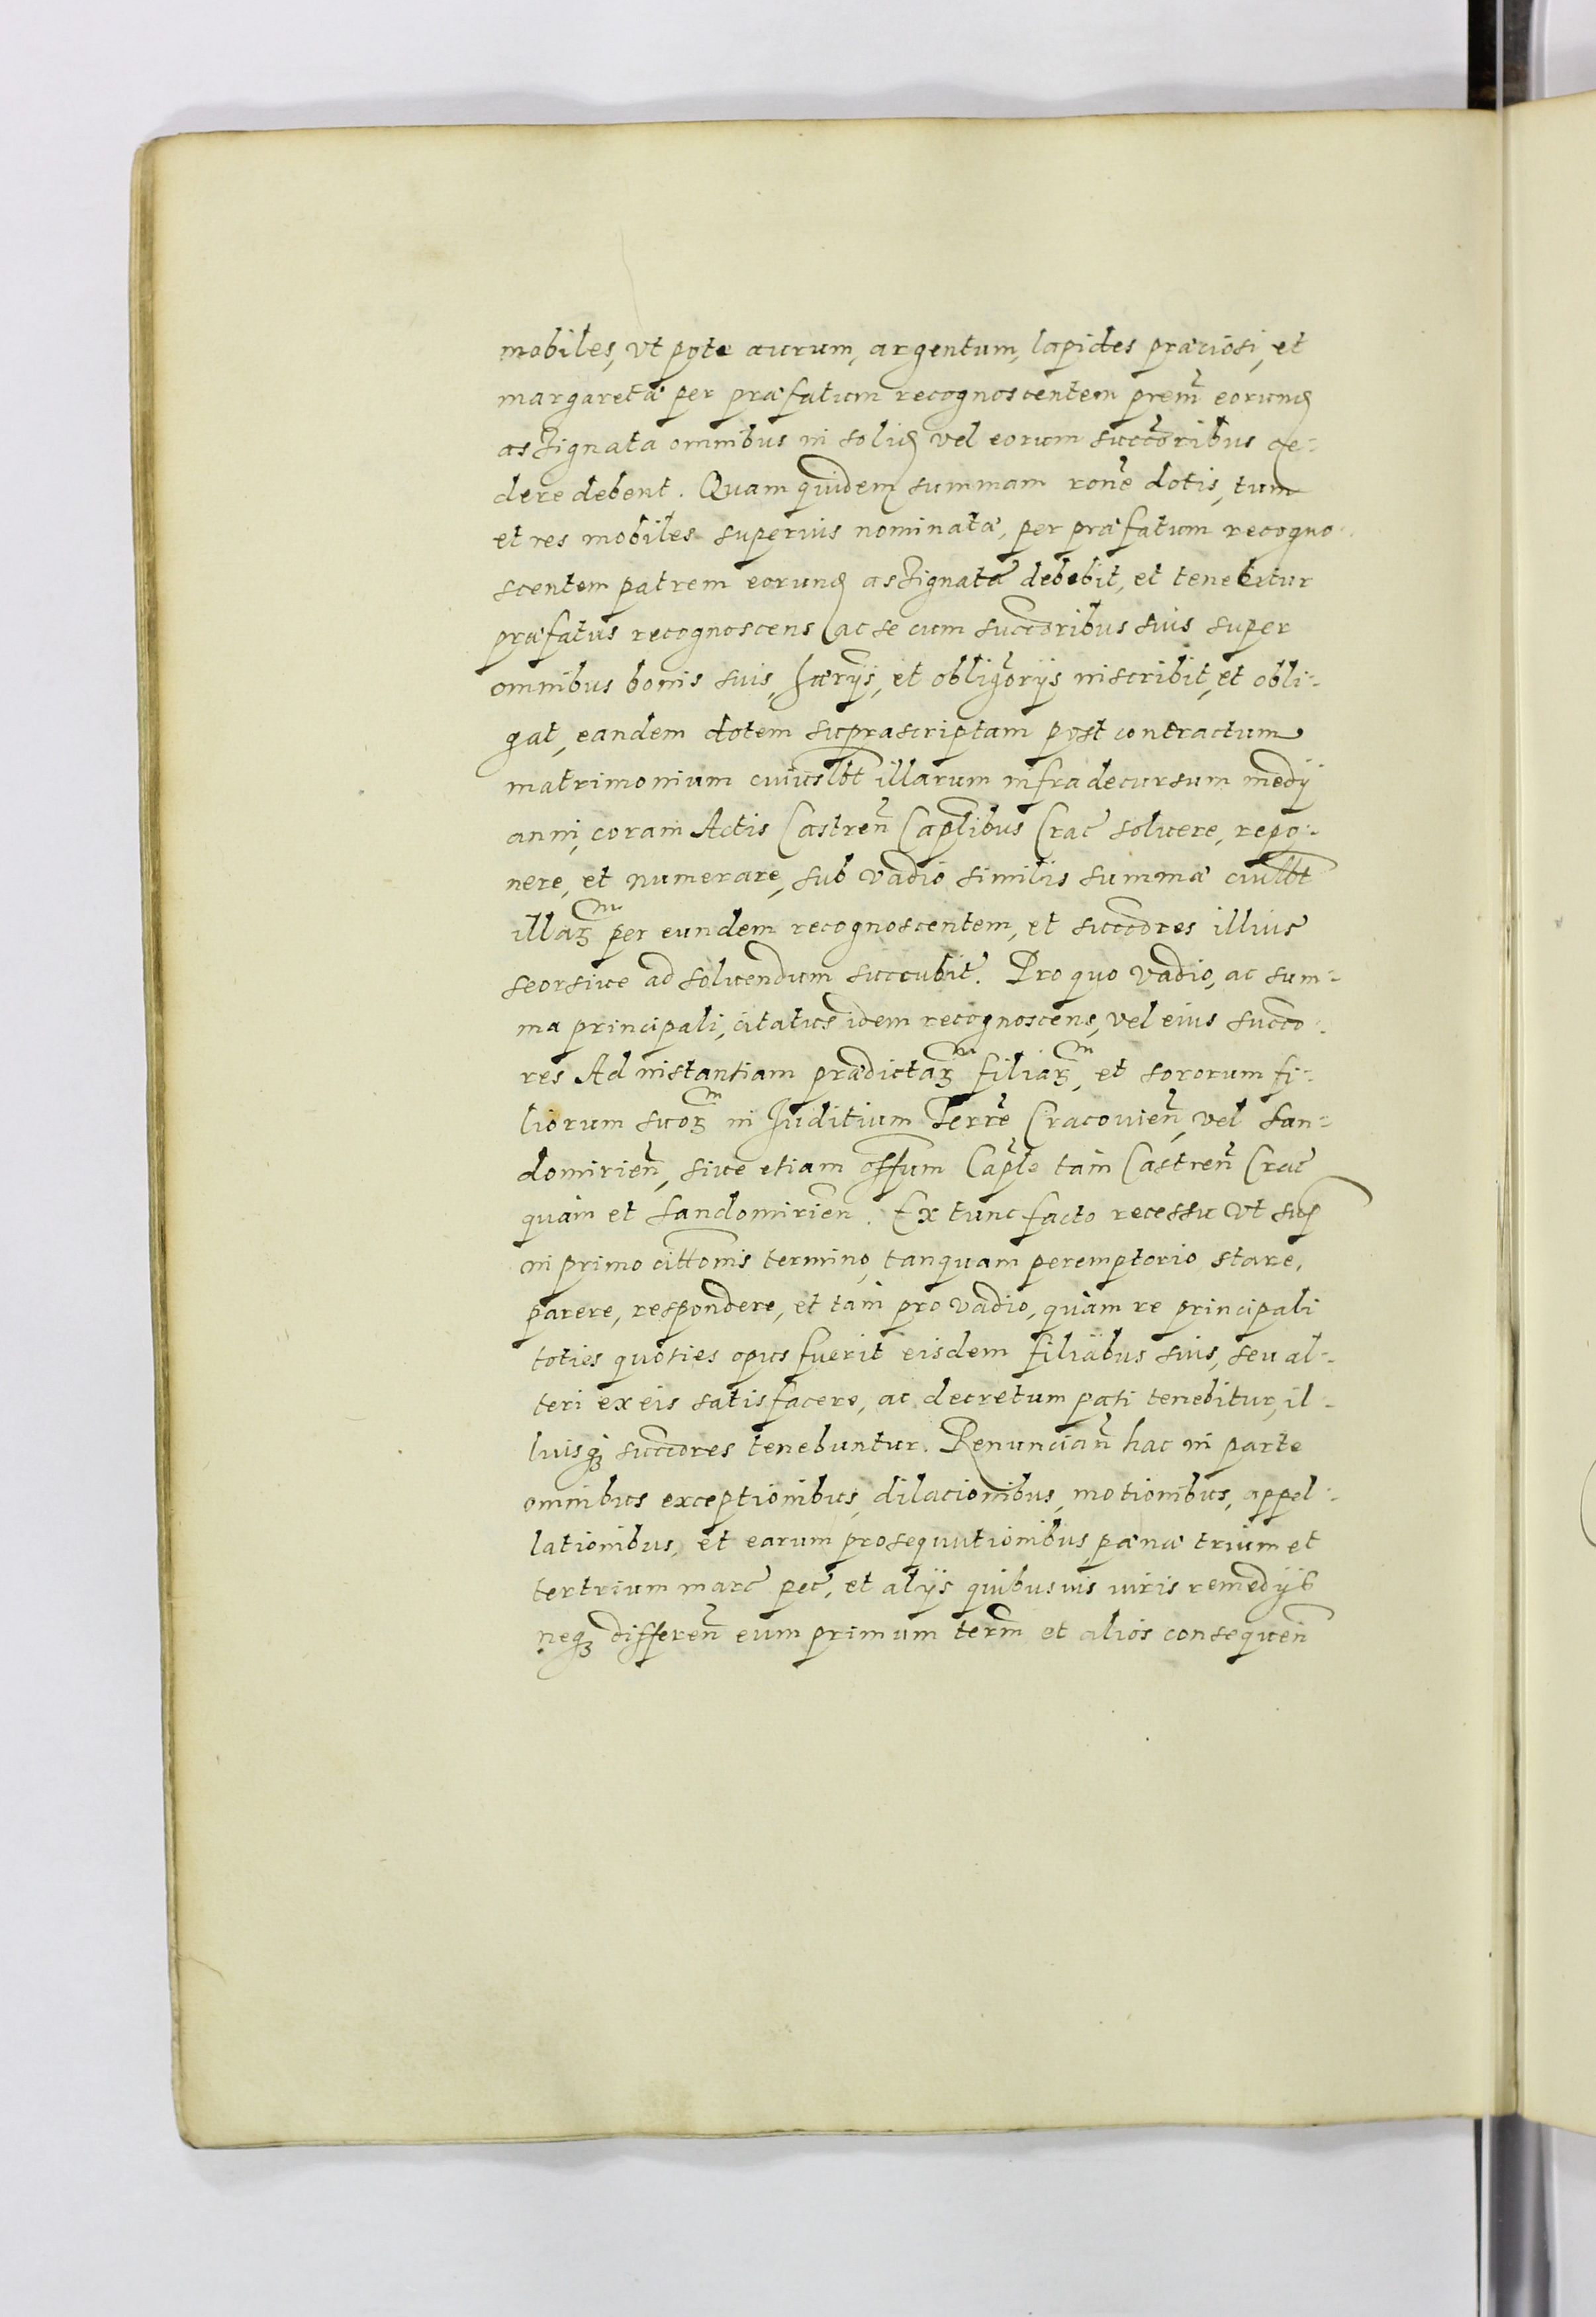 mobiles, vt pote aurum, argentum, lapides præciosi, et
margaretæ per præfatum recognoscentem prem̃ eorund
assignata omnibus in solid vel eorum succ̃oribus ce-
dere debent. Quam quidem summam rone dotis, tum
et res mobiles superius nominatæ, per præfatum recogno-
scentem patrem eorund assignatæ debebit, et tenebitur
præfatus recognoscens (ac se cum succ̃oribus suis super
omnibus bonis suis, hærijs, et obligorijs inscribit, et obli-
gat, eandem dotem suprascriptam post contractum
matrimonium cuiuslbt illarum infra decursum medij
anni, coram Actis Castren̄ Caplibus Crac̄ soluere, repo-
nere, et numerare, sub vadio similis summæ ciuslbt
illaꝝ per eundem recognoscentem, et succores illius
seorsiue ad soluendum succubit. Pro quo vadio, ac sum-
ma principali, citatus idem recognoscens, vel eius succo-
res Ad instantiam prædictaꝝ filiaꝝ, et sororum fi-
liorum suoꝝ in Juditium Terrē Cracouien̄, vel San-
domirien̄, siue etiam offum Caple tam Castren̄ Crac̄
quam et Sandomirien̄. Ex tunc facto recessu vt sup
in primo cittonis termino, tanquam peremptorio stare,
parere, respondere, et tam pro vadio, quàm re principali
toties quoties opus fuerit eisdem filiabus suis, seu al-
teri ex eis satisfacere, ac decretum pati tenebitur, il-
liusqꝫ succores tenebuntur. Renuncian̄ hac in parte
omnibus exceptionibus, dilacionibus, motionibus, appel-
lationibus, et earum prosequutionibus, pœnæ trium et
tertrium marc̄ pec̄, et alijs quibusuis iuris remedijs
neqꝫ differen̄ eum primum term̄ et alios consequen̄